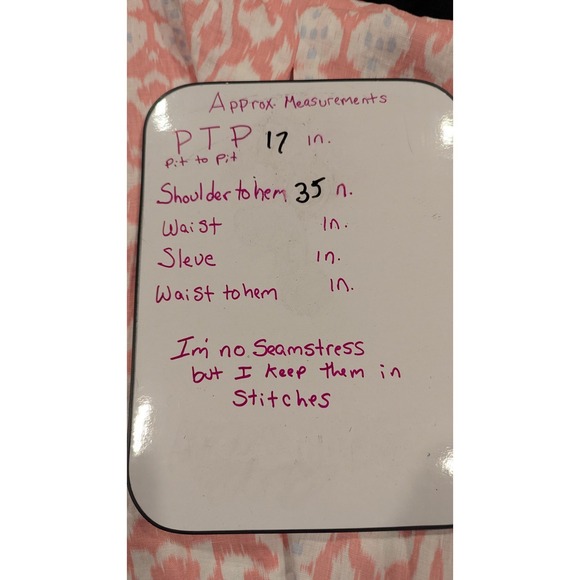 Approx. Measurements
PTP 17 in.
Pit to Pit
Shoulder to hem 35 n.
Waist in.
Sleve in.
Waist to hem in.
Im' no Seamstress
but I keep them in
Stitches